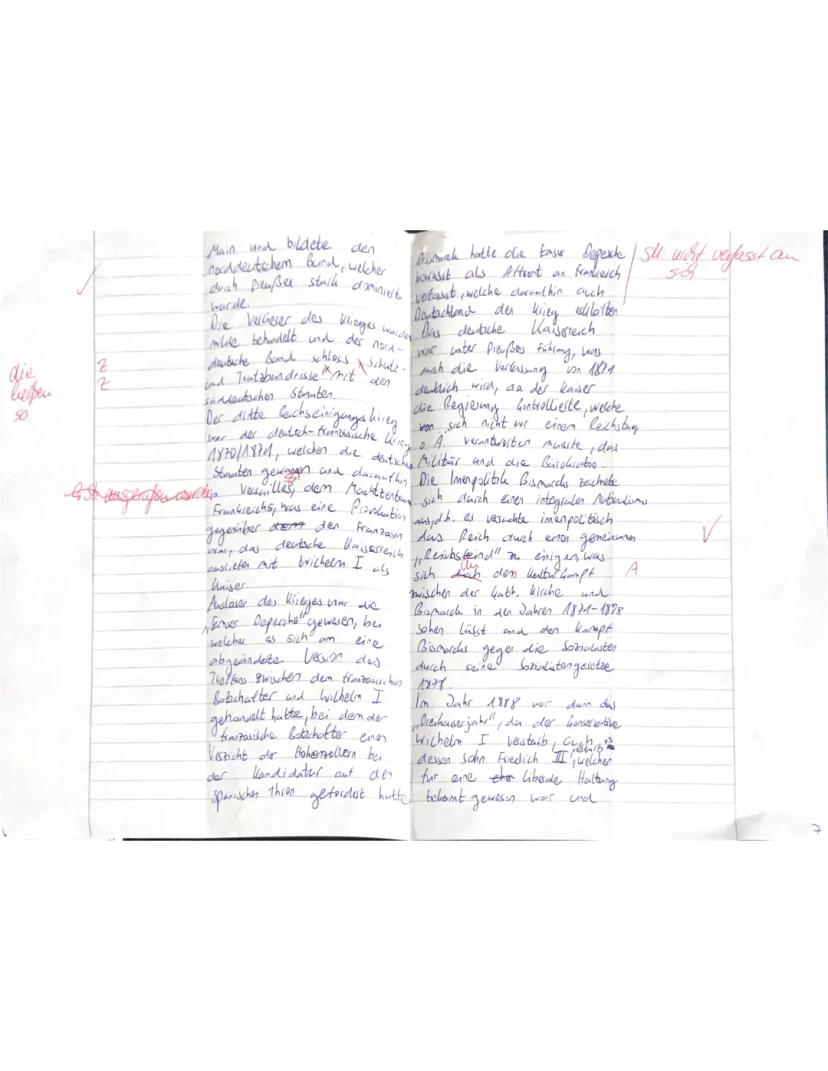 Main und bildete den
norddeutschem Bund, welcher
durch Preußen stark dominiert
wurde.
Die Verlierer des Krieges wurden
milde behandelt und der nord-
deutsche Bund schloss "Schutz-
und Trutzbündnisse" mit den
süddeutschen Staaten.
die
heißen
so
Z
Z
Der dritte Reichseinigungskrieg
war der deutsch-französische Krieg
1870/1871, welchen die deutschen
Staaten gewannen und daraufhin
in Versailles, dem Machtzentrum
Frankreichs, was eine Provokation
gegenüber dem den Franzosen
war, das deutsche Kaiserreich
ausriefen mit Wilhelm I als
Kaiser.
Auslöser des Krieges war die
„Emser Depesche" gewesen, bei
welcher es sich um eine
abgeänderte Version des
Treffens zwischen dem französischen
Botschafter und Wilhelm I
gehandelt hatte, bei dem der
französische Botschafter einen
Verzicht der Hohenzollern bei
der Kandidatur auf den
spanischen Thron gefordert hatte
Bismarck hatte die Emser Depesche
bewusst als Affront an Frankreich
verfasst, welche daraufhin auch
Deutschland den Krieg erklärten
nicht verfasst an
sich
Das deutsche Kaiserreich
war unter Preußens Führung, was
auch die Verfassung von 1871
deutlich wird, da der Kaiser
die Regierung kontrollierte, welche
von sich nicht vor einem Reichstag
o. Ä. verantworten musste, das
Militär und die Bürokratie.
Die Innenpolitik Bismarcks zeichnete
sich durch einen integralen Nationalismus
aus, d.h. es versuchte innenpolitisch
das Reich durch einen gemeinsamen
„Reichsfeind" zu einigen, was
sich durch den Kulturkampf
A
zwischen der kath. Kirche und
Bismarck in den Jahren 1871-1878
sehen lässt und den Kampf
Bismarcks gegen die Sozialisten
durch seine Sozialistengesetze
1878.
Im Jahr 1888 war dann das
„Dreikaiserjahr", da der konservative
Wilhelm I verstarb, auch
dessen Sohn Friedrich III verstarb, welcher
für eine eher liberale Haltung
bekannt gewesen war und
7